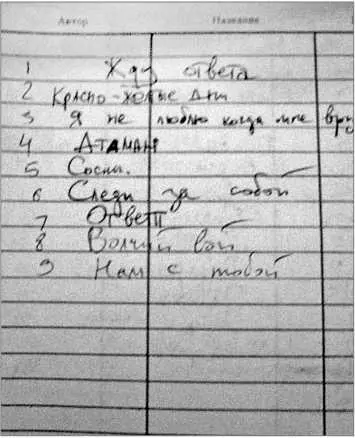 Автор Название
1 Жду ответа
2 Красно-жолтые дни
3 Я не люблю когда мне
4 Атаман
5 Сосны.
6 Следи за собой
7 Ответ
8 Волчий вой
9 Нам с тобой